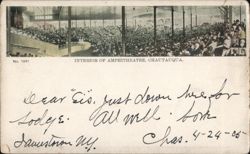 No. 1091
INTERIOR OF AMPHITHEATRE, CHAUTAUQUA.
Dear Sis. Just down here for
today. All well. both
Jamestown NY. Chas. 4-24-05